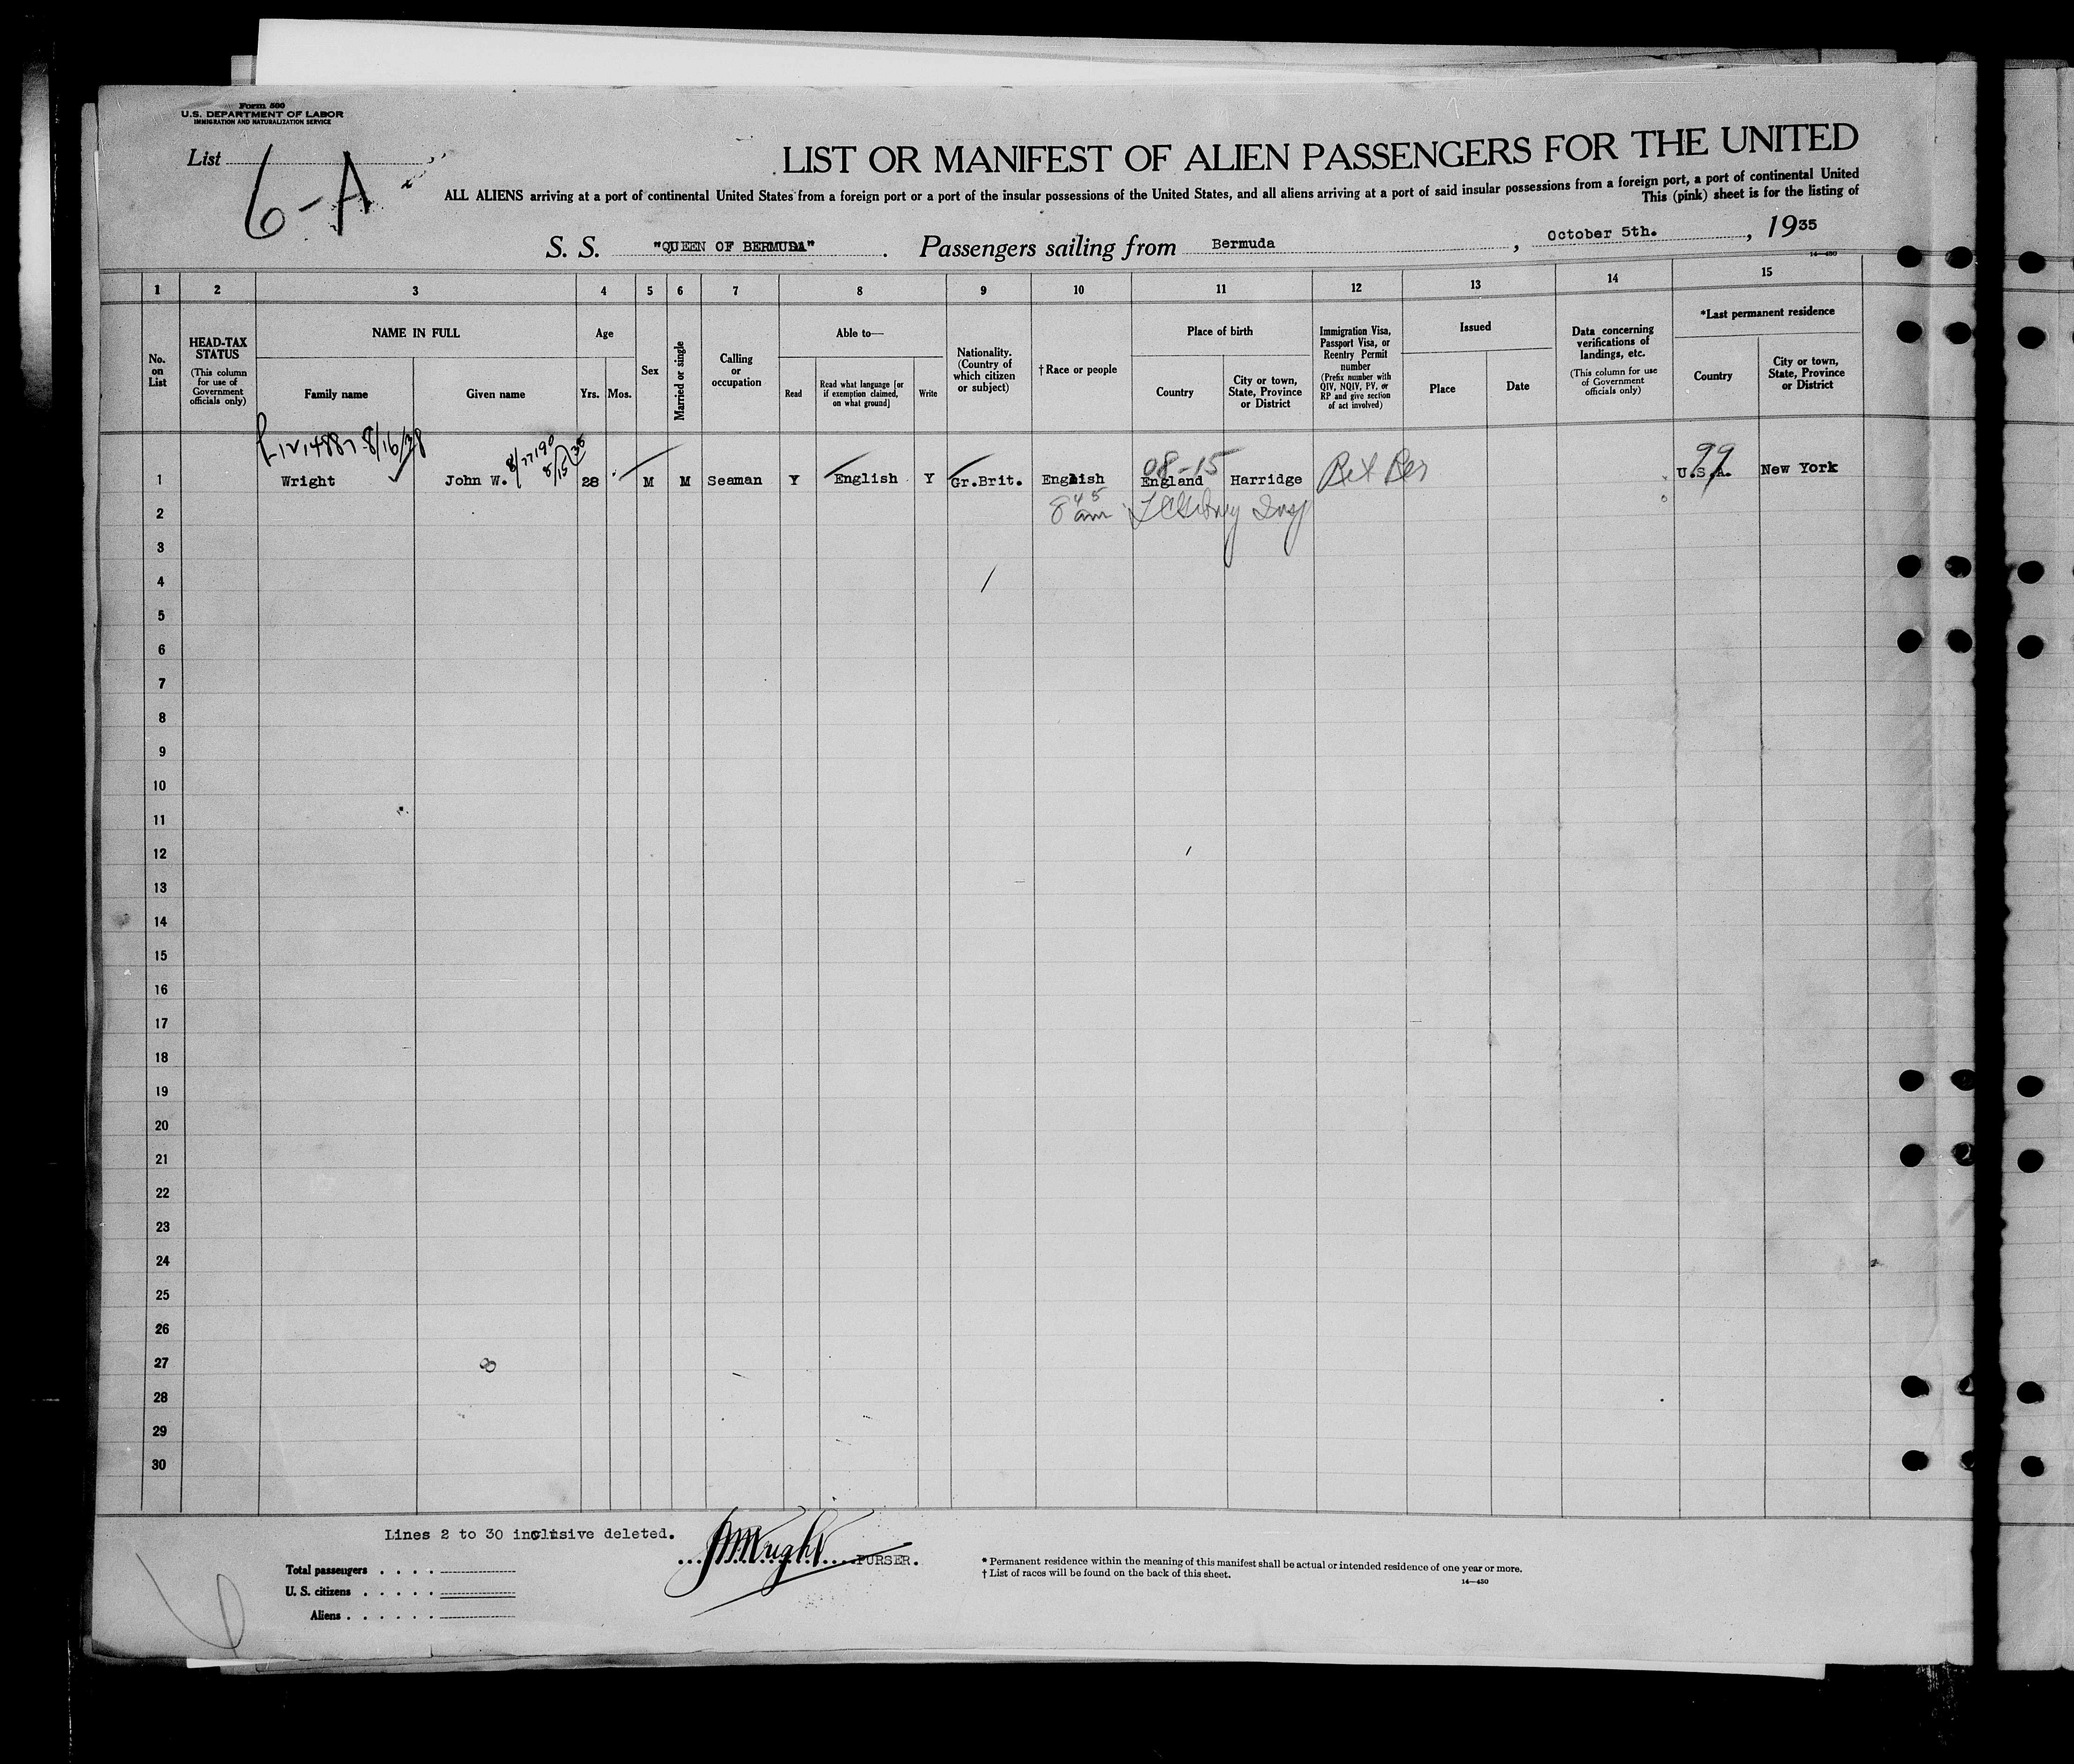 Form 500
U.S. DEPARTMENT OF LABOR
IMMIGRATION AND NATURALIZATION SERVICE
List
6-A
LIST OR MANIFEST OF ALIEN PASSENGERS FOR THE UNITED
ALL ALIENS arriving at a port of continental United States from a foreign port or a port of the insular possessions of the United States, and all aliens arriving at a port of said insular possessions from a foreign port, a port of continental United
This (pink) sheet is for the listing of
S. S. "QUEEN OF BERMUDA". Passengers sailing from Bermuda, October 5th., 1935
14—430
1 2 3 4 5 6 7 8 9 10 11 12 13 14 15
No. on List
HEAD-TAX STATUS
(This column for use of Government officials only)
NAME IN FULL
Family name
Given name
Age
Yrs.
Mos.
Sex
Married or single
Calling or occupation
Able to—
Read
Read what language [or if exemption claimed, on what ground]
Write
Nationality. (Country of which citizen or subject)
†Race or people
Place of birth
Country
City or town, State, Province or District
Immigration Visa, Passport Visa, or Reentry Permit number
(Prefix number with QIV, NQIV, PV, or RP and give section of act involved)
Issued
Place
Date
Data concerning verifications of landings, etc.
(This column for use of Government officials only)
*Last permanent residence
Country
City or town, State, Province or District
8/16/28
08-15
99
1 Wright John W. 28 M M Seaman Y English Y Gr.Brit. English England Harridge U.S.A. New York
2 8 45 am
3
4
5
6
7
8
9
10
11
12
13
14
15
16
17
18
19
20
21
22
23
24
25
26
27
28
29
30
Lines 2 to 30 inclusive deleted.
PURSER.
Total passengers
U. S. citizens
Aliens
* Permanent residence within the meaning of this manifest shall be actual or intended residence of one year or more.
† List of races will be found on the back of this sheet.
14—430